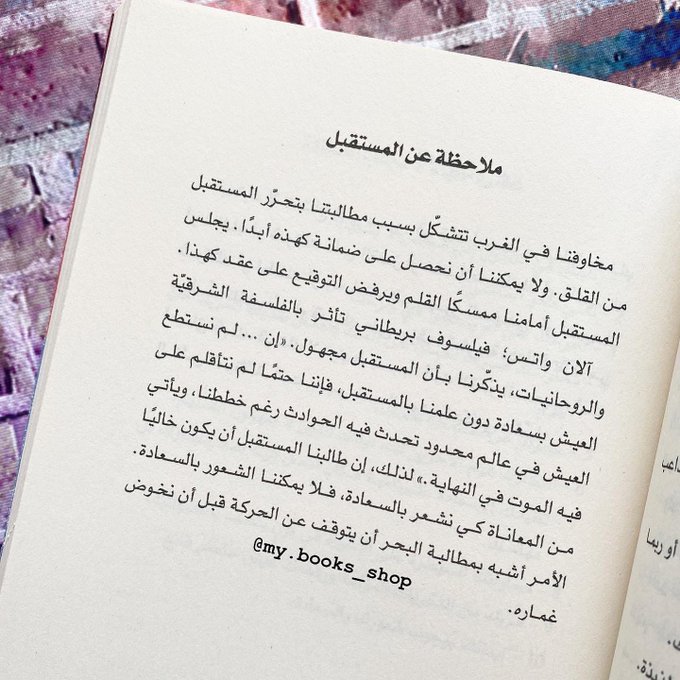 ملاحظة عن المستقبل
مخاوفنا في الغرب تتشكّل بسبب مطالبتنا بتحرّر المستقبل
من القلق. ولا يمكننا أن نحصل على ضمانة كهذه أبدًا. يجلس
المستقبل أمامنا ممسكًا القلم ويرفض التوقيع على عقد كهذا.
آلان واتس؛ فيلسوف بريطاني تأثر بالفلسفة الشرقيّة
والروحانيات، يذكّرنا بأن المستقبل مجهول. «إن ... لم نستطع
العيش بسعادة دون علمنا بالمستقبل، فإننا حتمًا لم نتأقلم على
العيش في عالم محدود تحدث فيه الحوادث رغم خططنا، ويأتي
فيه الموت في النهاية.» لذلك، إن طالبنا المستقبل أن يكون خاليًا
من المعاناة كي نشعر بالسعادة، فلا يمكننا الشعور بالسعادة.
الأمر أشبه بمطالبة البحر أن يتوقف عن الحركة قبل أن نخوض
غماره.
@my.books_shop
أو ربما